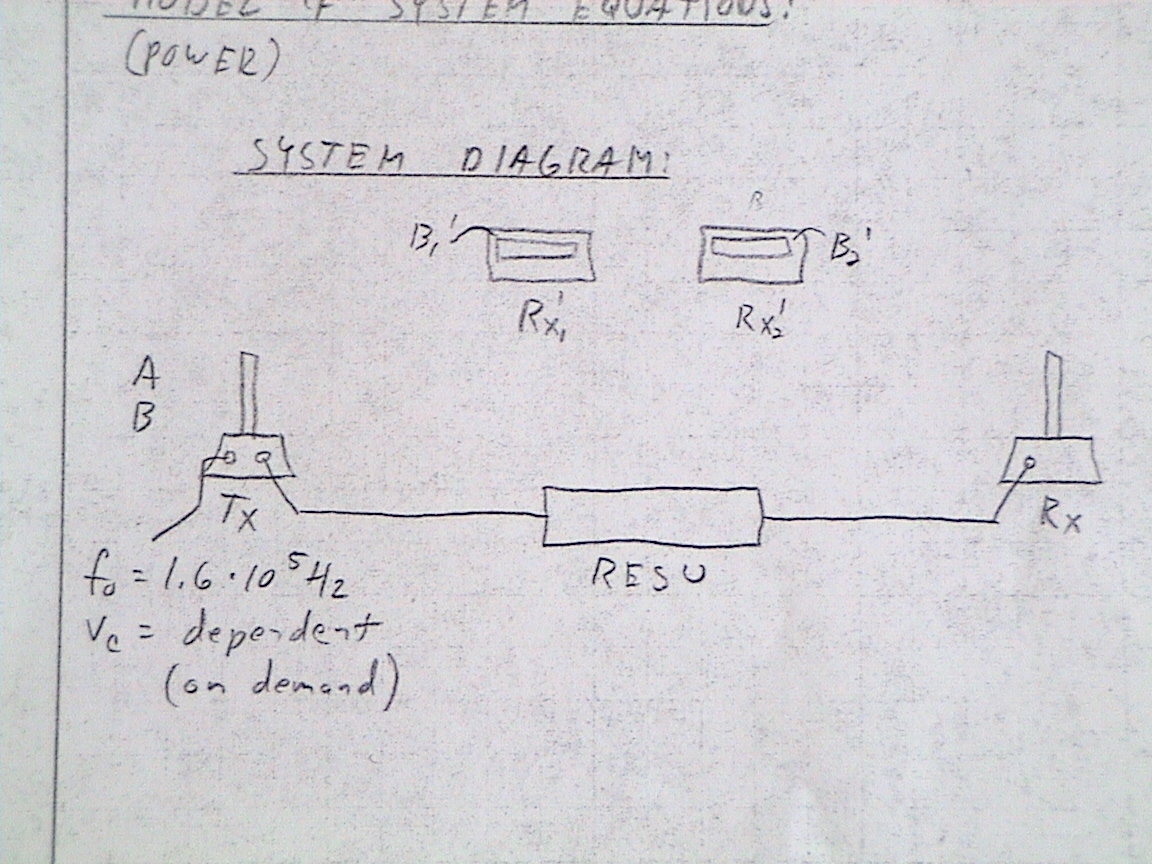 MODEL OF SYSTEM EQUATIONS:
(POWER)
SYSTEM DIAGRAM:
B
B₁' B₂'
Rx₁' Rx₂'
A
B
Tx Rx
RESU
f₀ = 1.6 · 10⁵ Hz
Vc = dependent
(on demand)